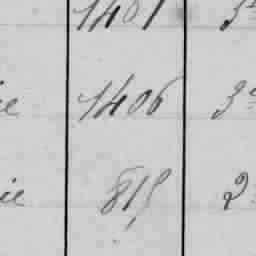 1401 3
ie 1406 3e
ie 815 2